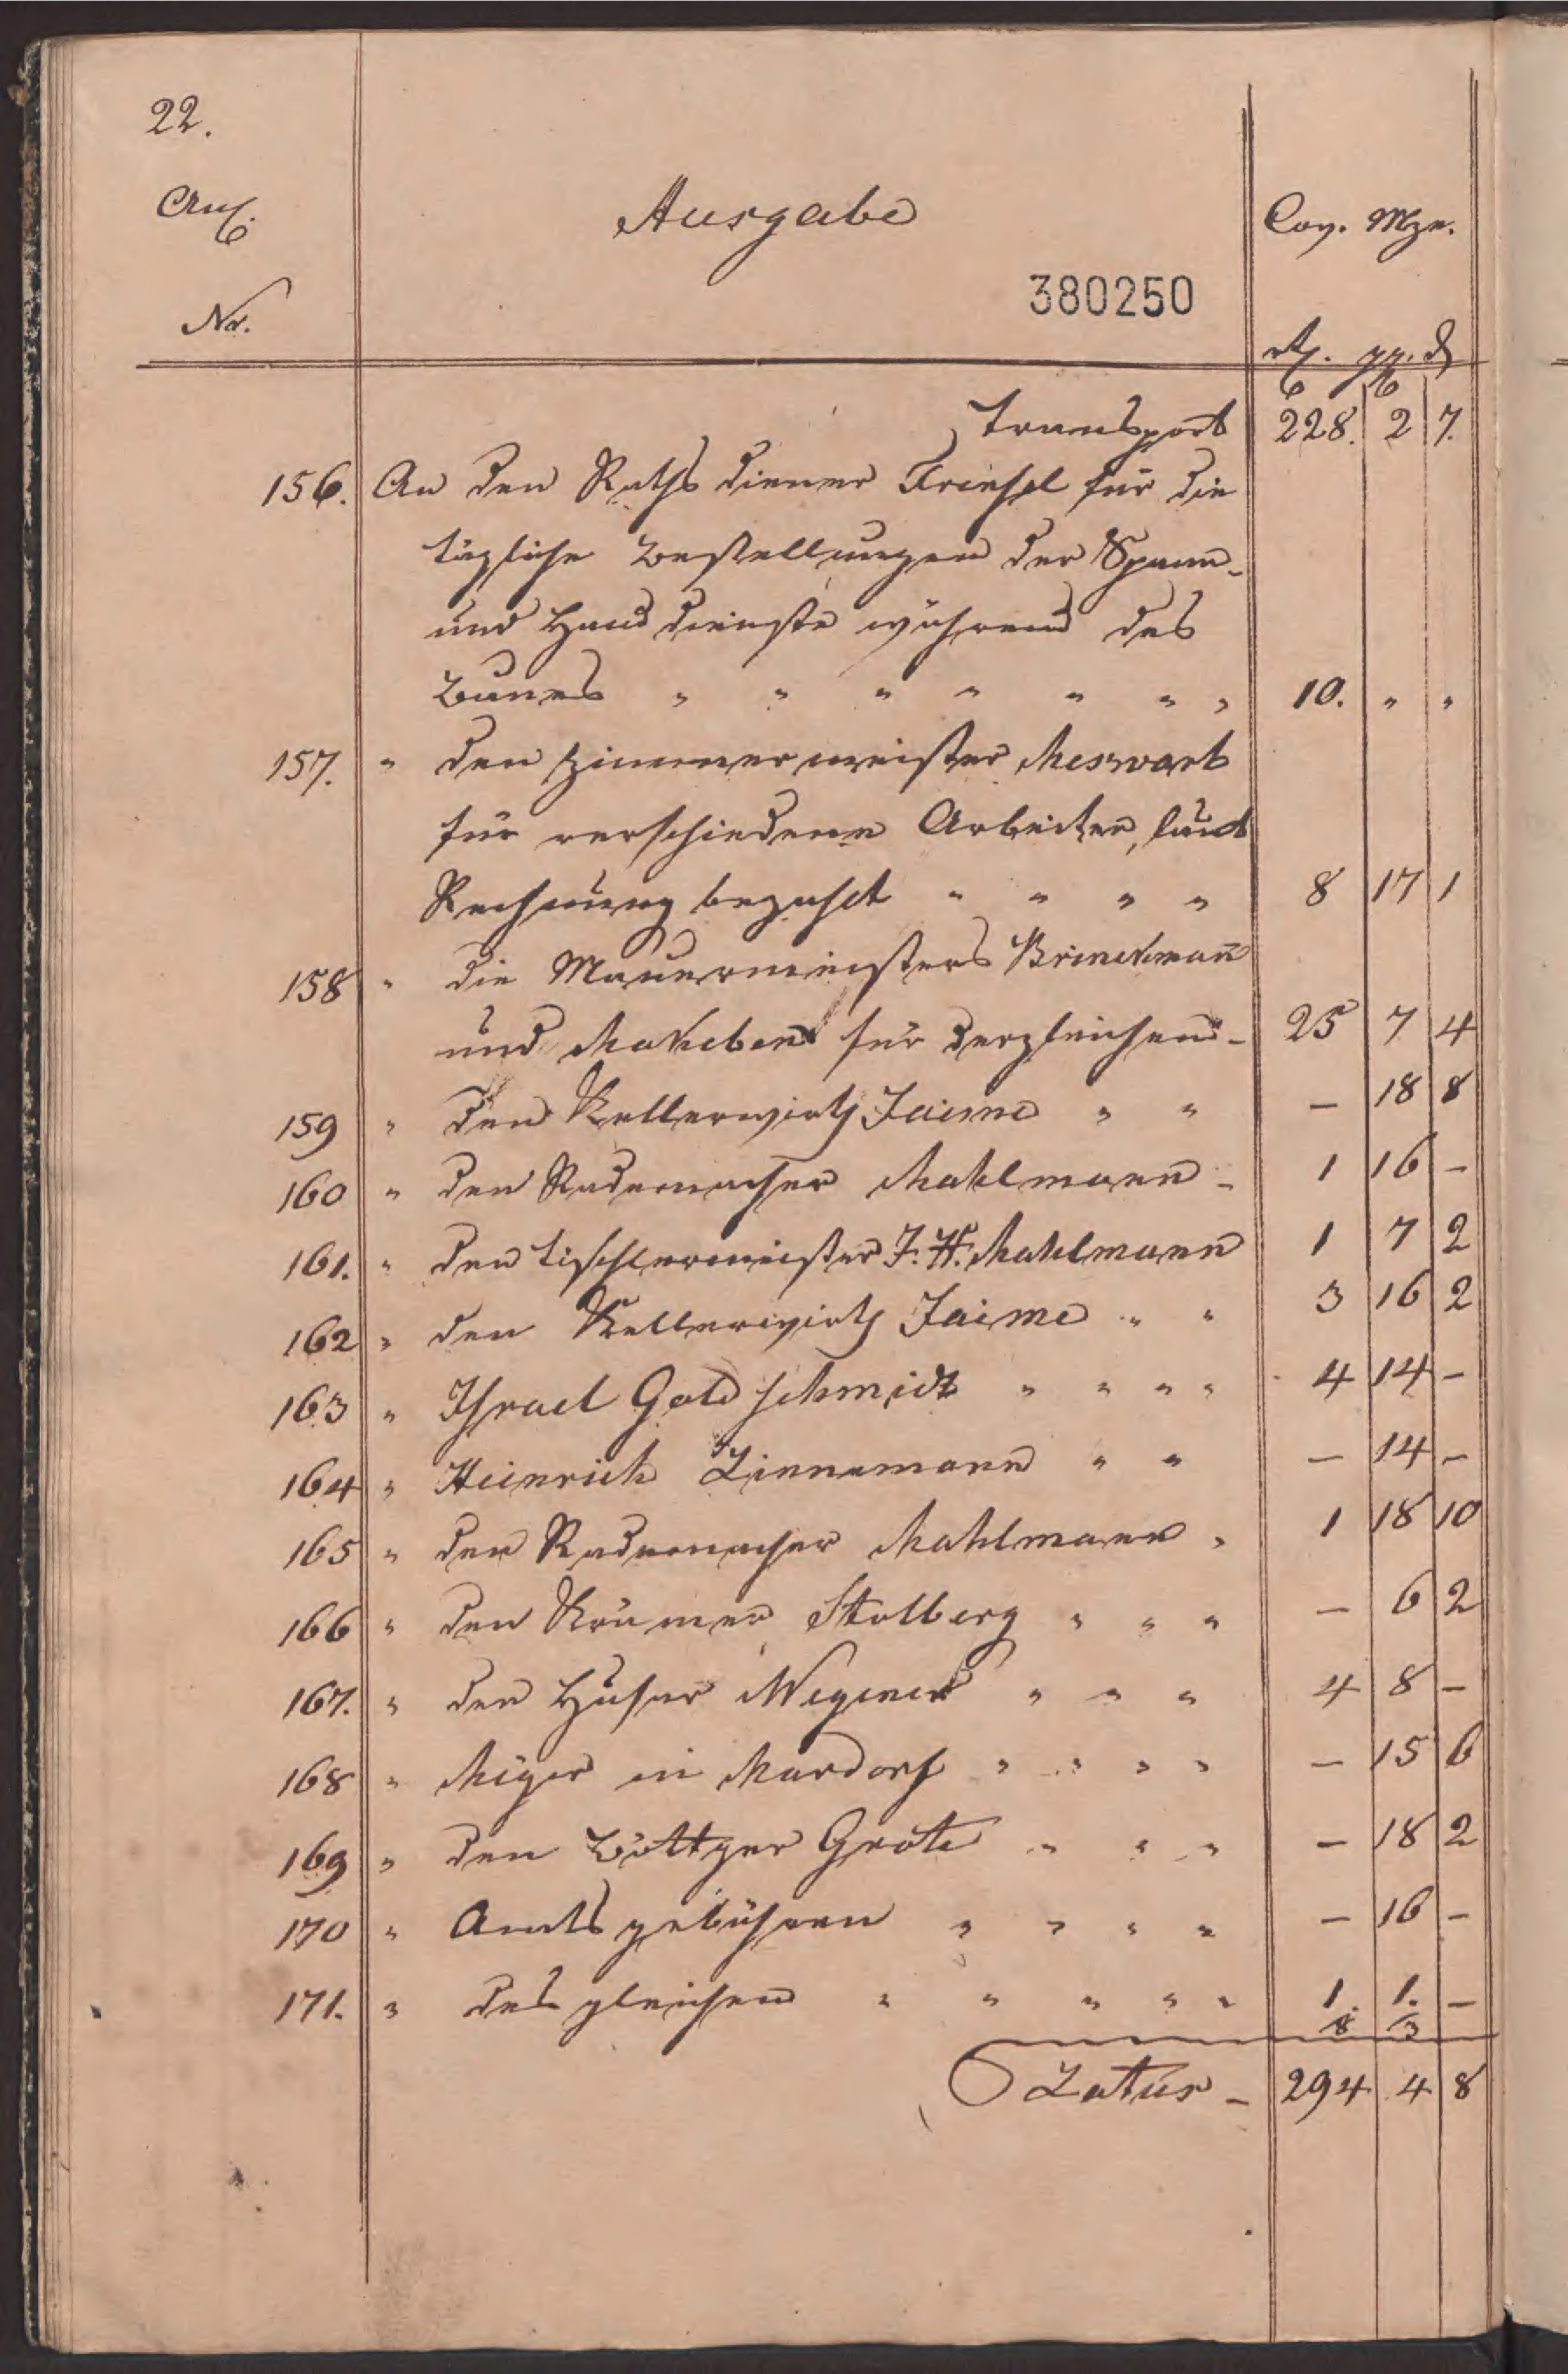 22.
Anl.
Ausgabe
Nr.
380250
Cas. Mze.
rtl. ggl. d
Transport 228. 2 7.
156. An den Rathsdiener Friesel für die
tägliche Bestellungen der Spann-
und Handdienste während des
Baues " " " " " " " 10. " "
157. " den Zimmermeister Meswarb
für verschiedene Arbeiten, laut
Rechnung bezahlt " " " " 8 17 1
158 " die Mauermeisters Brinckman̄
und Makeben für dergleichen - 25 7 4
159 " den Kellerwirth Jaime " " — 18 8
160 " den Rademacher Mahlmann - 1 16 —
161. " den Tischlermeister J. H. Mahlmann 1 7 2
162 " den Kellerwirth Jaime " " 3 16 2
163 " Israel Goldschmidt " " " " 4 14 —
164 " Heinrich Linnemann " " — 14 —
165 " den Rademacher Mahlmann " 1 18 10
166 " den Krämer Stolberg " " " — 6 2
167. " den Husar Wegener " " " 4 8 —
168 " Meyer in Mardorf " " " " — 15 6
169 " den Böttger Grote " " " — 18 2
170 " Amtsgebühren " " " " — 16 —
171. " desgleichen " " " " " 1. 1. —
8 3
Latus - 294 4 8